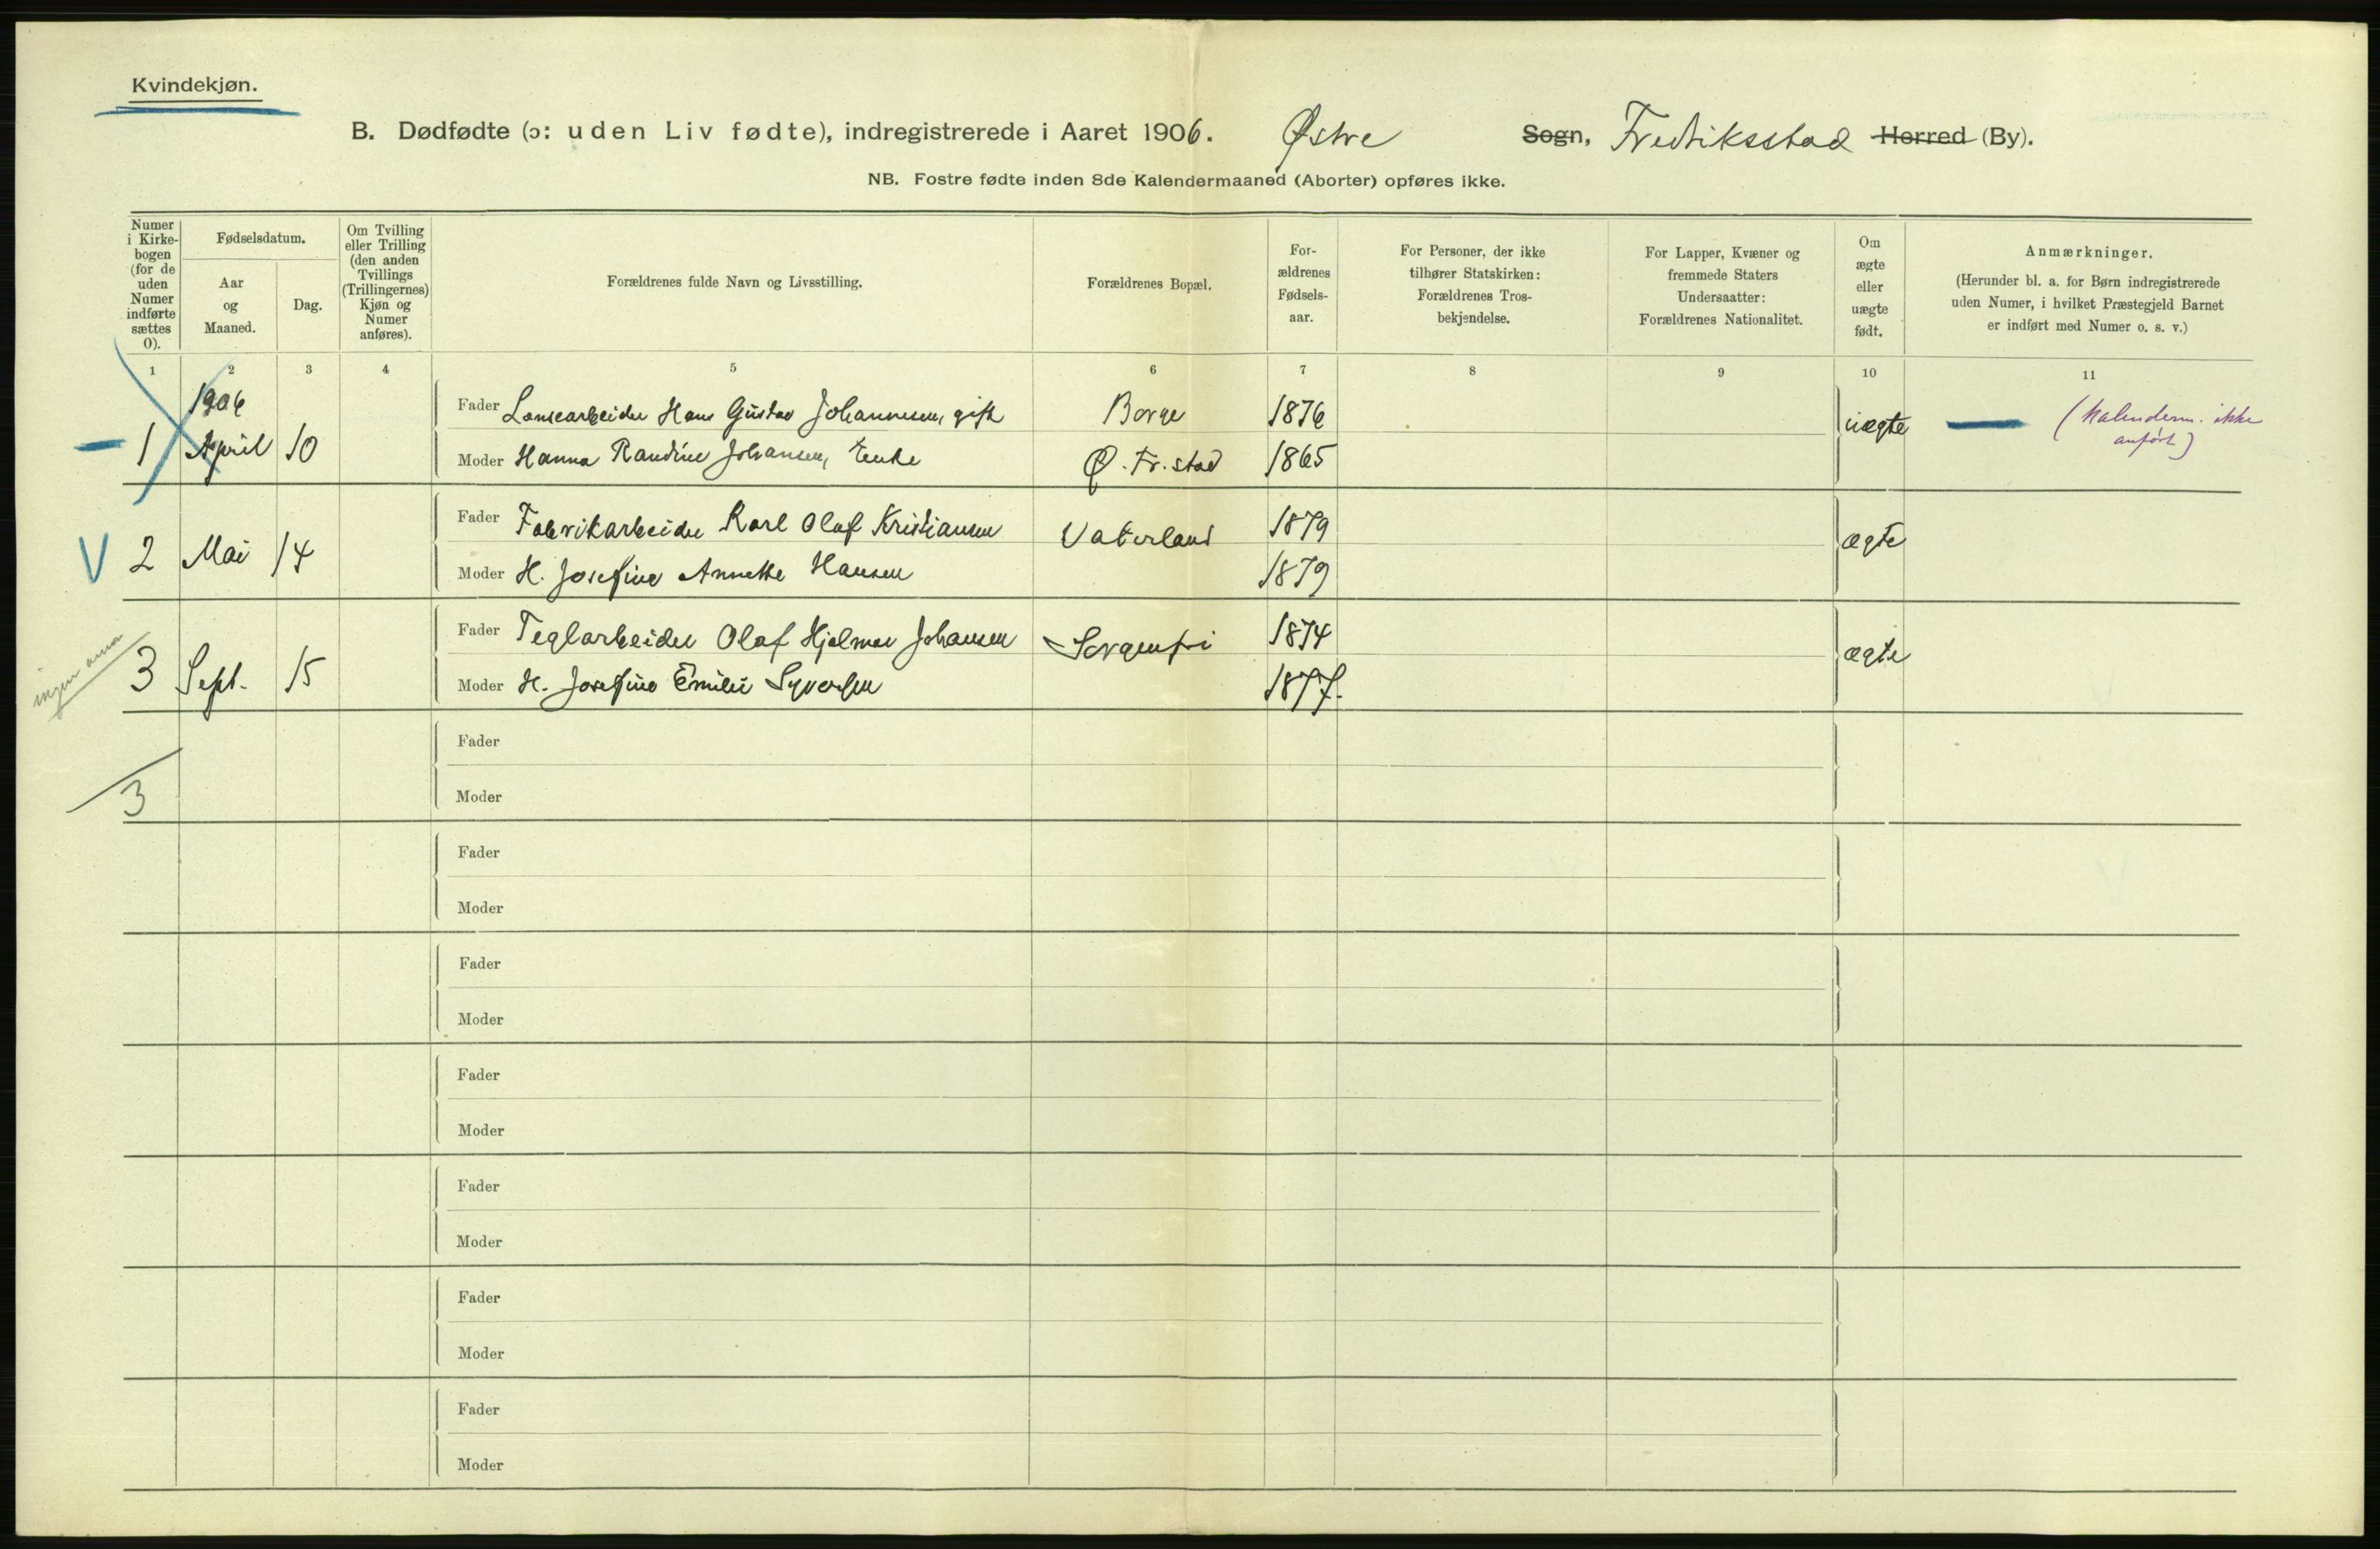 Kvindekjøn.
B. Dødfødte (ɔ: uden Liv fødte), indregistrerede i Aaret 1906. Østre Sogn, Fredriksstad Herred (By).
NB. Fostre fødte inden 8de Kalendermaaned (Aborter) opføres ikke.
Numer i Kirke-bogen (for de uden Numer indførte sættes 0).
Fødselsdatum.
Aar og Maaned.
Dag.
Om Tvilling eller Trilling (den anden Tvillings (Trillingernes) Kjøn og Numer anføres).
Forældrenes fulde Navn og Livsstilling.
Forældrenes Bopæl.
For-ældrenes Fødsels-aar.
For Personer, der ikke tilhører Statskirken: Forældrenes Tros-bekjendelse.
For Lapper, Kvæner og fremmede Staters Undersaatter: Forældrenes Nationalitet.
Om ægte eller uægte født.
Anmærkninger.
(Herunder bl. a. for Børn indregistrerede uden Numer, i hvilket Præstegjeld Barnet er indført med Numer o. s. v.)
1 2 3 4 5 6 7 8 9 10 11
1906
Fader Hans Gustav Johannesen, gift Borge 1876
1 April 10 uægte (Kalenderm. ikke anført)
Moder Hanna Randine Johansen, Enke Ø. Fr.stad 1865
Fader Fabrikarbeider Karl Olaf Kristiansen Vaterland 1879
V 2 Mai 14 ægte
Moder H. Josefine Annette Hansen 1879
Fader Teglarbeider Olaf Hjalmar Johansen Sorgenfri 1874
ingen anm 3 Sept. 15 ægte
Moder H. Josefine Emilie Syversen 1877.
Fader
3
Moder
Fader
Moder
Fader
Moder
Fader
Moder
Fader
Moder
Fader
Moder
Fader
Moder